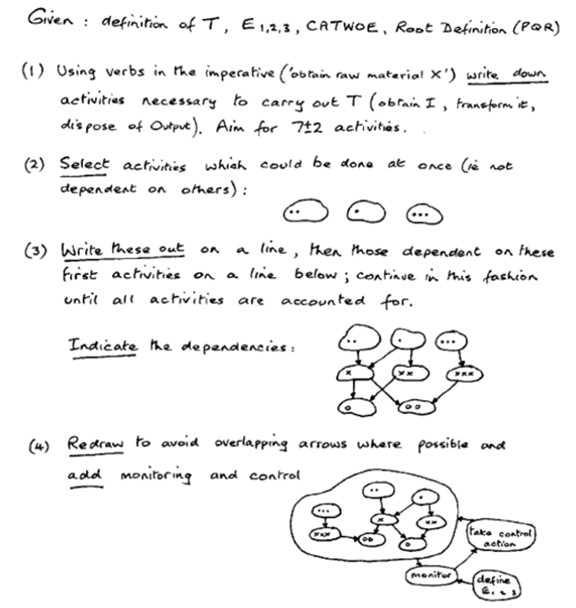 Given : definition of T, E1,2,3, CATWOE, Root Definition (PQR)
(1) Using verbs in the imperative ('obtain raw material X') write down
activities necessary to carry out T (obtain I, transform it,
dispose of Output). Aim for 7±2 activities.
(2) Select activities which could be done at once (ie not
dependent on others) :
(3) Write these out on a line, then those dependent on these
first activities on a line below; continue in this fashion
until all activities are accounted for.
Indicate the dependencies:
x xx xxx
o oo
(4) Redraw to avoid overlapping arrows where possible and
add monitoring and control
x xx
xxx oo o
take control
action
monitor
define
E1, 2, 3